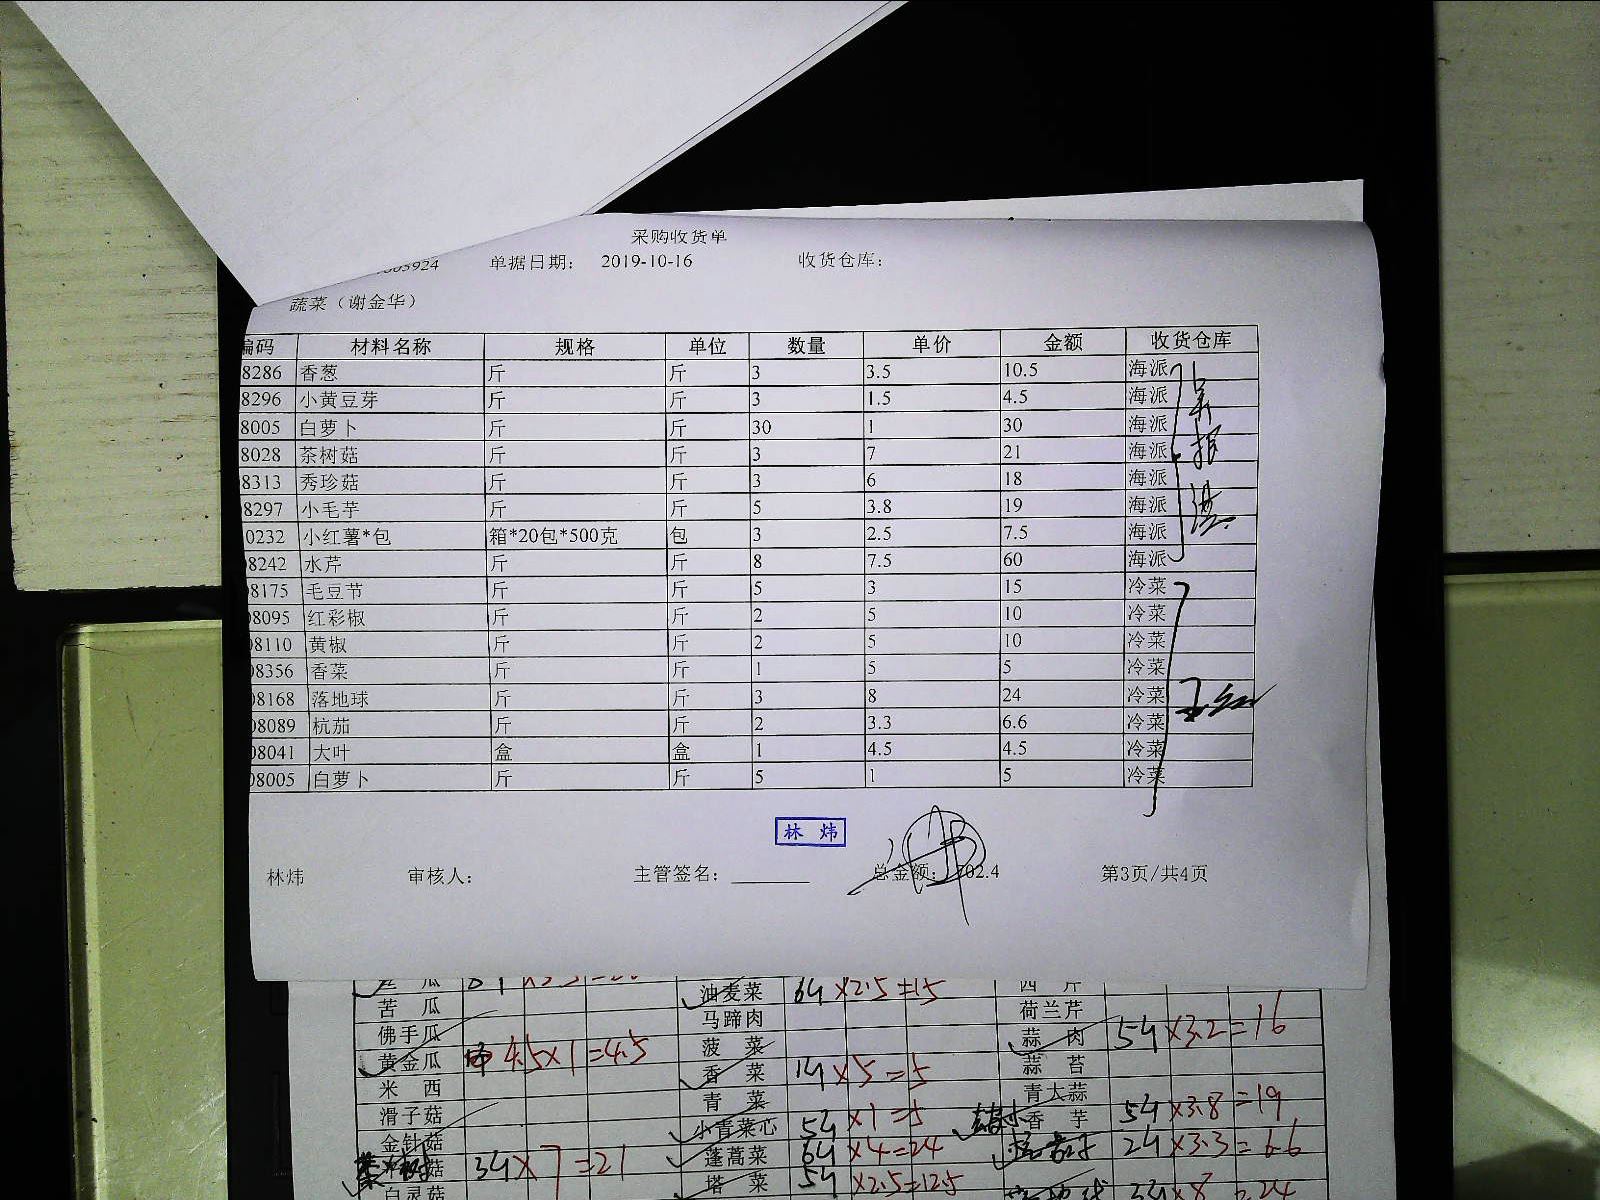 采购收货单
单据日期： 2019-10-16 收货仓库：
蔬菜（谢金华）
编码 材料名称 规格 单位 数量 单价 金额 收货仓库
8286 香葱 斤 斤 3 3.5 10.5 海派
8296 小黄豆芽 斤 斤 3 1.5 4.5 海派
8005 白萝卜 斤 斤 30 1 30 海派
8028 茶树菇 斤 斤 3 7 21 海派
8313 秀珍菇 斤 斤 3 6 18 海派
8297 小毛芋 斤 斤 5 3.8 19 海派
0232 小红薯*包 箱*20包*500克 包 3 2.5 7.5 海派
08242 水芹 斤 斤 8 7.5 60 海派
08175 毛豆节 斤 斤 5 3 15 冷菜
08095 红彩椒 斤 斤 2 5 10 冷菜
08110 黄椒 斤 斤 2 5 10 冷菜
08356 香菜 斤 斤 1 5 5 冷菜
08168 落地球 斤 斤 3 8 24 冷菜
08089 杭茄 斤 斤 2 3.3 6.6 冷菜
08041 大叶 盒 盒 1 4.5 4.5 冷菜
08005 白萝卜 斤 斤 5 1 5 冷菜
林炜
林炜 审核人： 主管签名： 总金额： 702.4 第3页/共4页
油麦菜 ×2.5=15 西芹
苦瓜 马蹄肉 荷兰芹
佛手瓜 菠菜 蒜肉 ×3.2=16
黄金瓜 4.5×1=4.5 香菜 ×5=5 蒜苔
米西 青菜 青大蒜
滑子菇 小青菜心 ×1=5 香芋 ×3.8=19
金针菇 蓬蒿菜 ×4=24 ×3.3=6.6
菇 ×7=21 塔菜 ×2.5=12.5 ×8=24
白灵菇